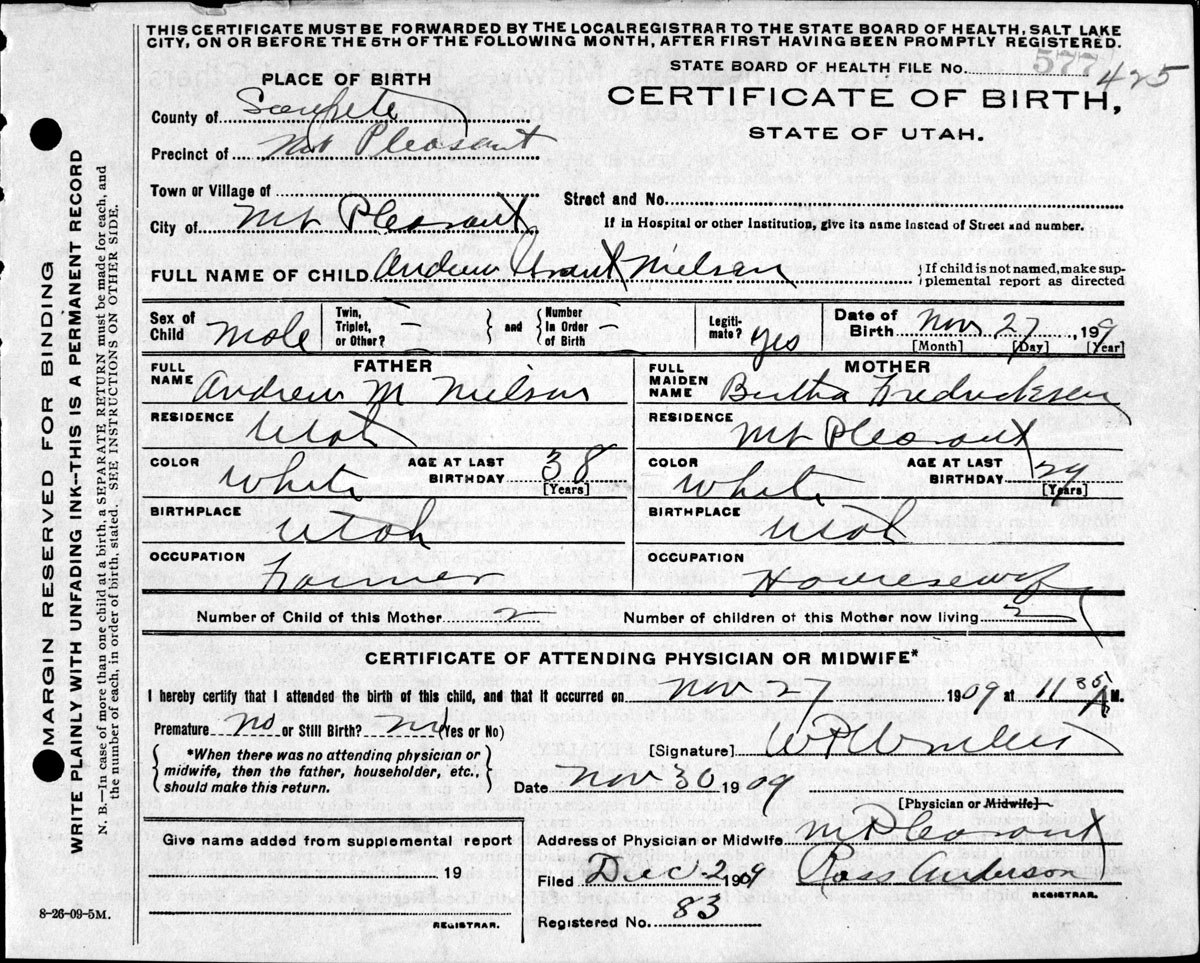 THIS CERTIFICATE MUST BE FORWARDED BY THE LOCAL REGISTRAR TO THE STATE BOARD OF HEALTH, SALT LAKE
CITY, ON OR BEFORE THE 5TH OF THE FOLLOWING MONTH, AFTER FIRST HAVING BEEN PROMPTLY REGISTERED.
STATE BOARD OF HEALTH FILE No. 577 425
PLACE OF BIRTH
CERTIFICATE OF BIRTH,
STATE OF UTAH.
County of Sanpete
Precinct of Mt Pleasant
Town or Village of
Street and No.
City of Mt Pleasant
If in Hospital or other Institution, give its name instead of Street and number.
FULL NAME OF CHILD Andrew Grant Nielsen
{If child is not named, make sup-
plemental report as directed
Sex of Child Male
Twin, Triplet, or Other? –
and
Number In Order of Birth –
Legiti-mate? Yes
Date of Birth Nov 27 1909
[Month] [Day] [Year]
FATHER
FULL NAME Andrew M Nielsen
RESIDENCE Utah
COLOR White
AGE AT LAST BIRTHDAY 38
[Years]
BIRTHPLACE Utah
OCCUPATION Farmer
MOTHER
FULL MAIDEN NAME Bertha Fredricksen
RESIDENCE Mt Pleasant
COLOR White
AGE AT LAST BIRTHDAY 29
[Years]
BIRTHPLACE Utah
OCCUPATION Housewife
Number of Child of this Mother 2
Number of children of this Mother now living 2
CERTIFICATE OF ATTENDING PHYSICIAN OR MIDWIFE*
I hereby certify that I attended the birth of this child, and that it occurred on Nov 27 1909 at 11 35 A M.
Premature no or Still Birth? no (Yes or No)
{*When there was no attending physician or
midwife, then the father, householder, etc.,
should make this return.}
[Signature]
Date Nov 30 1909
[Physician or Midwife]
Give name added from supplemental report
19
REGISTRAR.
Address of Physician or Midwife Mt Pleasant
Filed Dec 2 1909 Ross Anderson
REGISTRAR.
Registered No. 83
8-26-09-5M.
MARGIN RESERVED FOR BINDING
WRITE PLAINLY WITH UNFADING INK--THIS IS A PERMANENT RECORD
N. B.—In case of more than one child at a birth, a SEPARATE RETURN must be made for each, and
the number of each, in order of birth, stated. SEE INSTRUCTIONS ON OTHER SIDE.